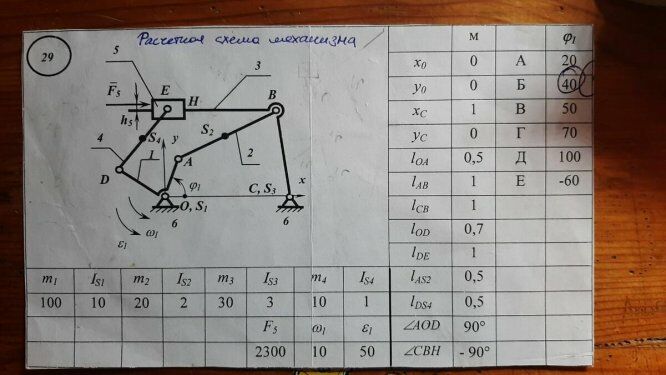 29
Расчетная схема механизма
5
E
H
3
B
F̄5
h5
S4
y
S2
4
1
A
2
D
φ1
C, S3
x
O, S1
ω1
ε1
6
6
м φ1
x0 0 А 20
y0 0 Б 40
xC 1 В 50
yC 0 Г 70
lOA 0,5 Д 100
lAB 1 Е -60
lCB 1
lOD 0,7
lDE 1
lAS2 0,5
lDS4 0,5
∠AOD 90°
∠CBH - 90°
m1 IS1 m2 IS2 m3 IS3 m4 IS4
100 10 20 2 30 3 10 1
F5 ω1 ε1
2300 10 50